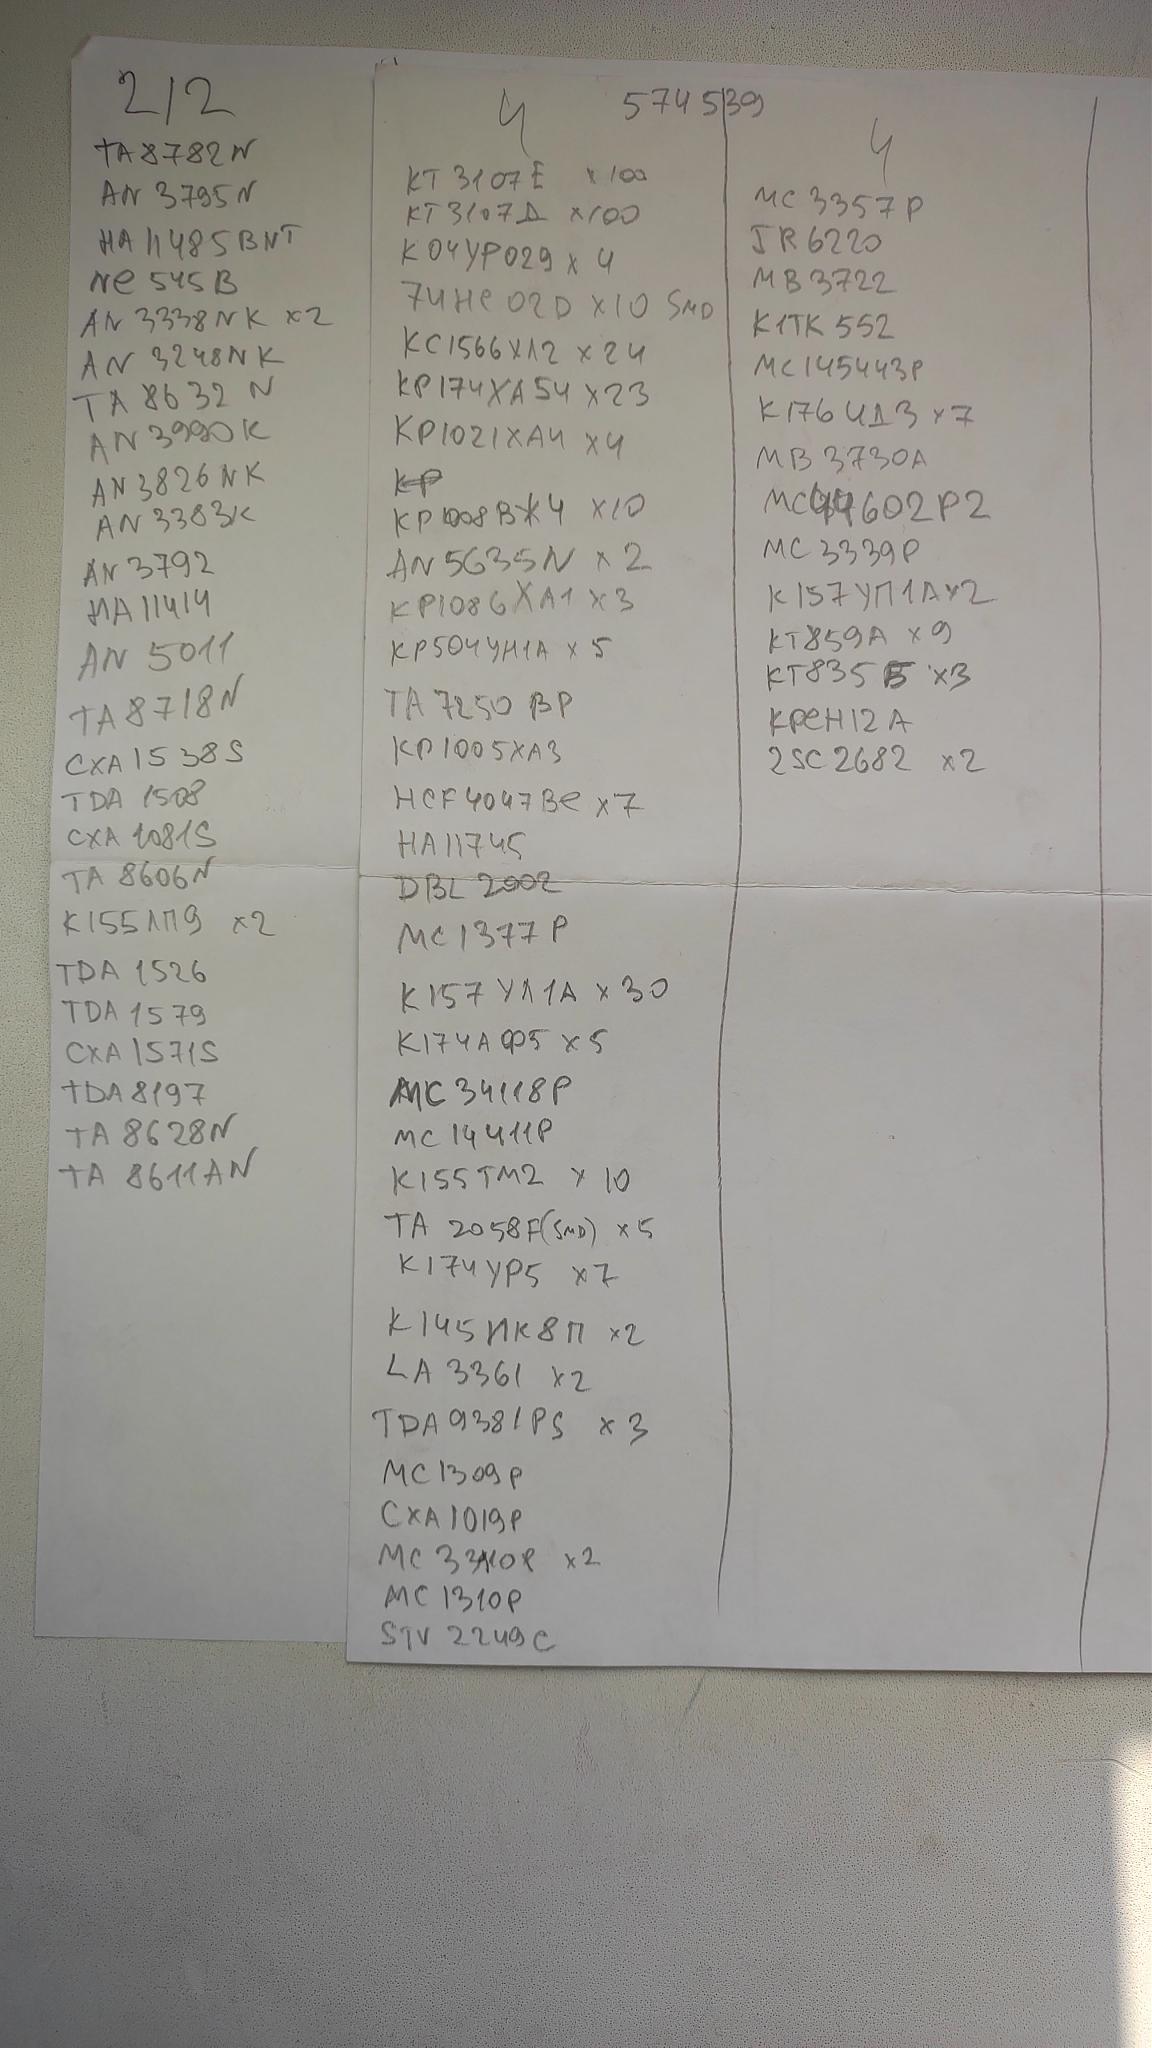 2/2
TA8782N
AN 3795N
HA11485BNT
NE545B
AN 3338NK x2
AN 3248NK
TA 8632 N
AN3990K
AN3826NK
AN3383K
AN3792
HA11414
AN 5011
TA8718N
CXA1538S
TDA 1508
CXA 1081S
TA 8606N
К155ЛП9 x2
TDA 1526
TDA 1579
CXA 1571S
TDA8197
TA 8628N
TA 8611AN
4
574539
КТ3107Е x100
КТ3107Д x100
К04УР029 x 4
74HC02D x10 SMD
КС1566ХЛ2 x24
КР174ХА54 x23
КР1021ХА4 x4
КР1008ВЖ4 x10
AN5635N x 2
КР1086ХА1 x3
КР504УН1А x 5
TA 7250 BP
КР1005ХА3
HCF4047BE x7
HA11745
DBL 2002
MC1377P
К157УЛ1А x30
К174АФ5 x5
MC34118P
MC14411P
К155ТМ2 x 10
TA 2058F(SMD) x5
К174УР5 x7
К145ИК8П x2
LA 3361 x2
TDA9381PS x3
MC1309P
CXA1019P
MC3310P x2
MC1310P
STV 2249C
4
MC3357P
IR6220
MB3722
К1ТК552
MC145443P
К176ИД3 x7
MB3730A
MC44602P2
MC3339P
К157УП1А x2
КТ859А x9
КТ835Б x3
КРЕН12А
2SC2682 x2